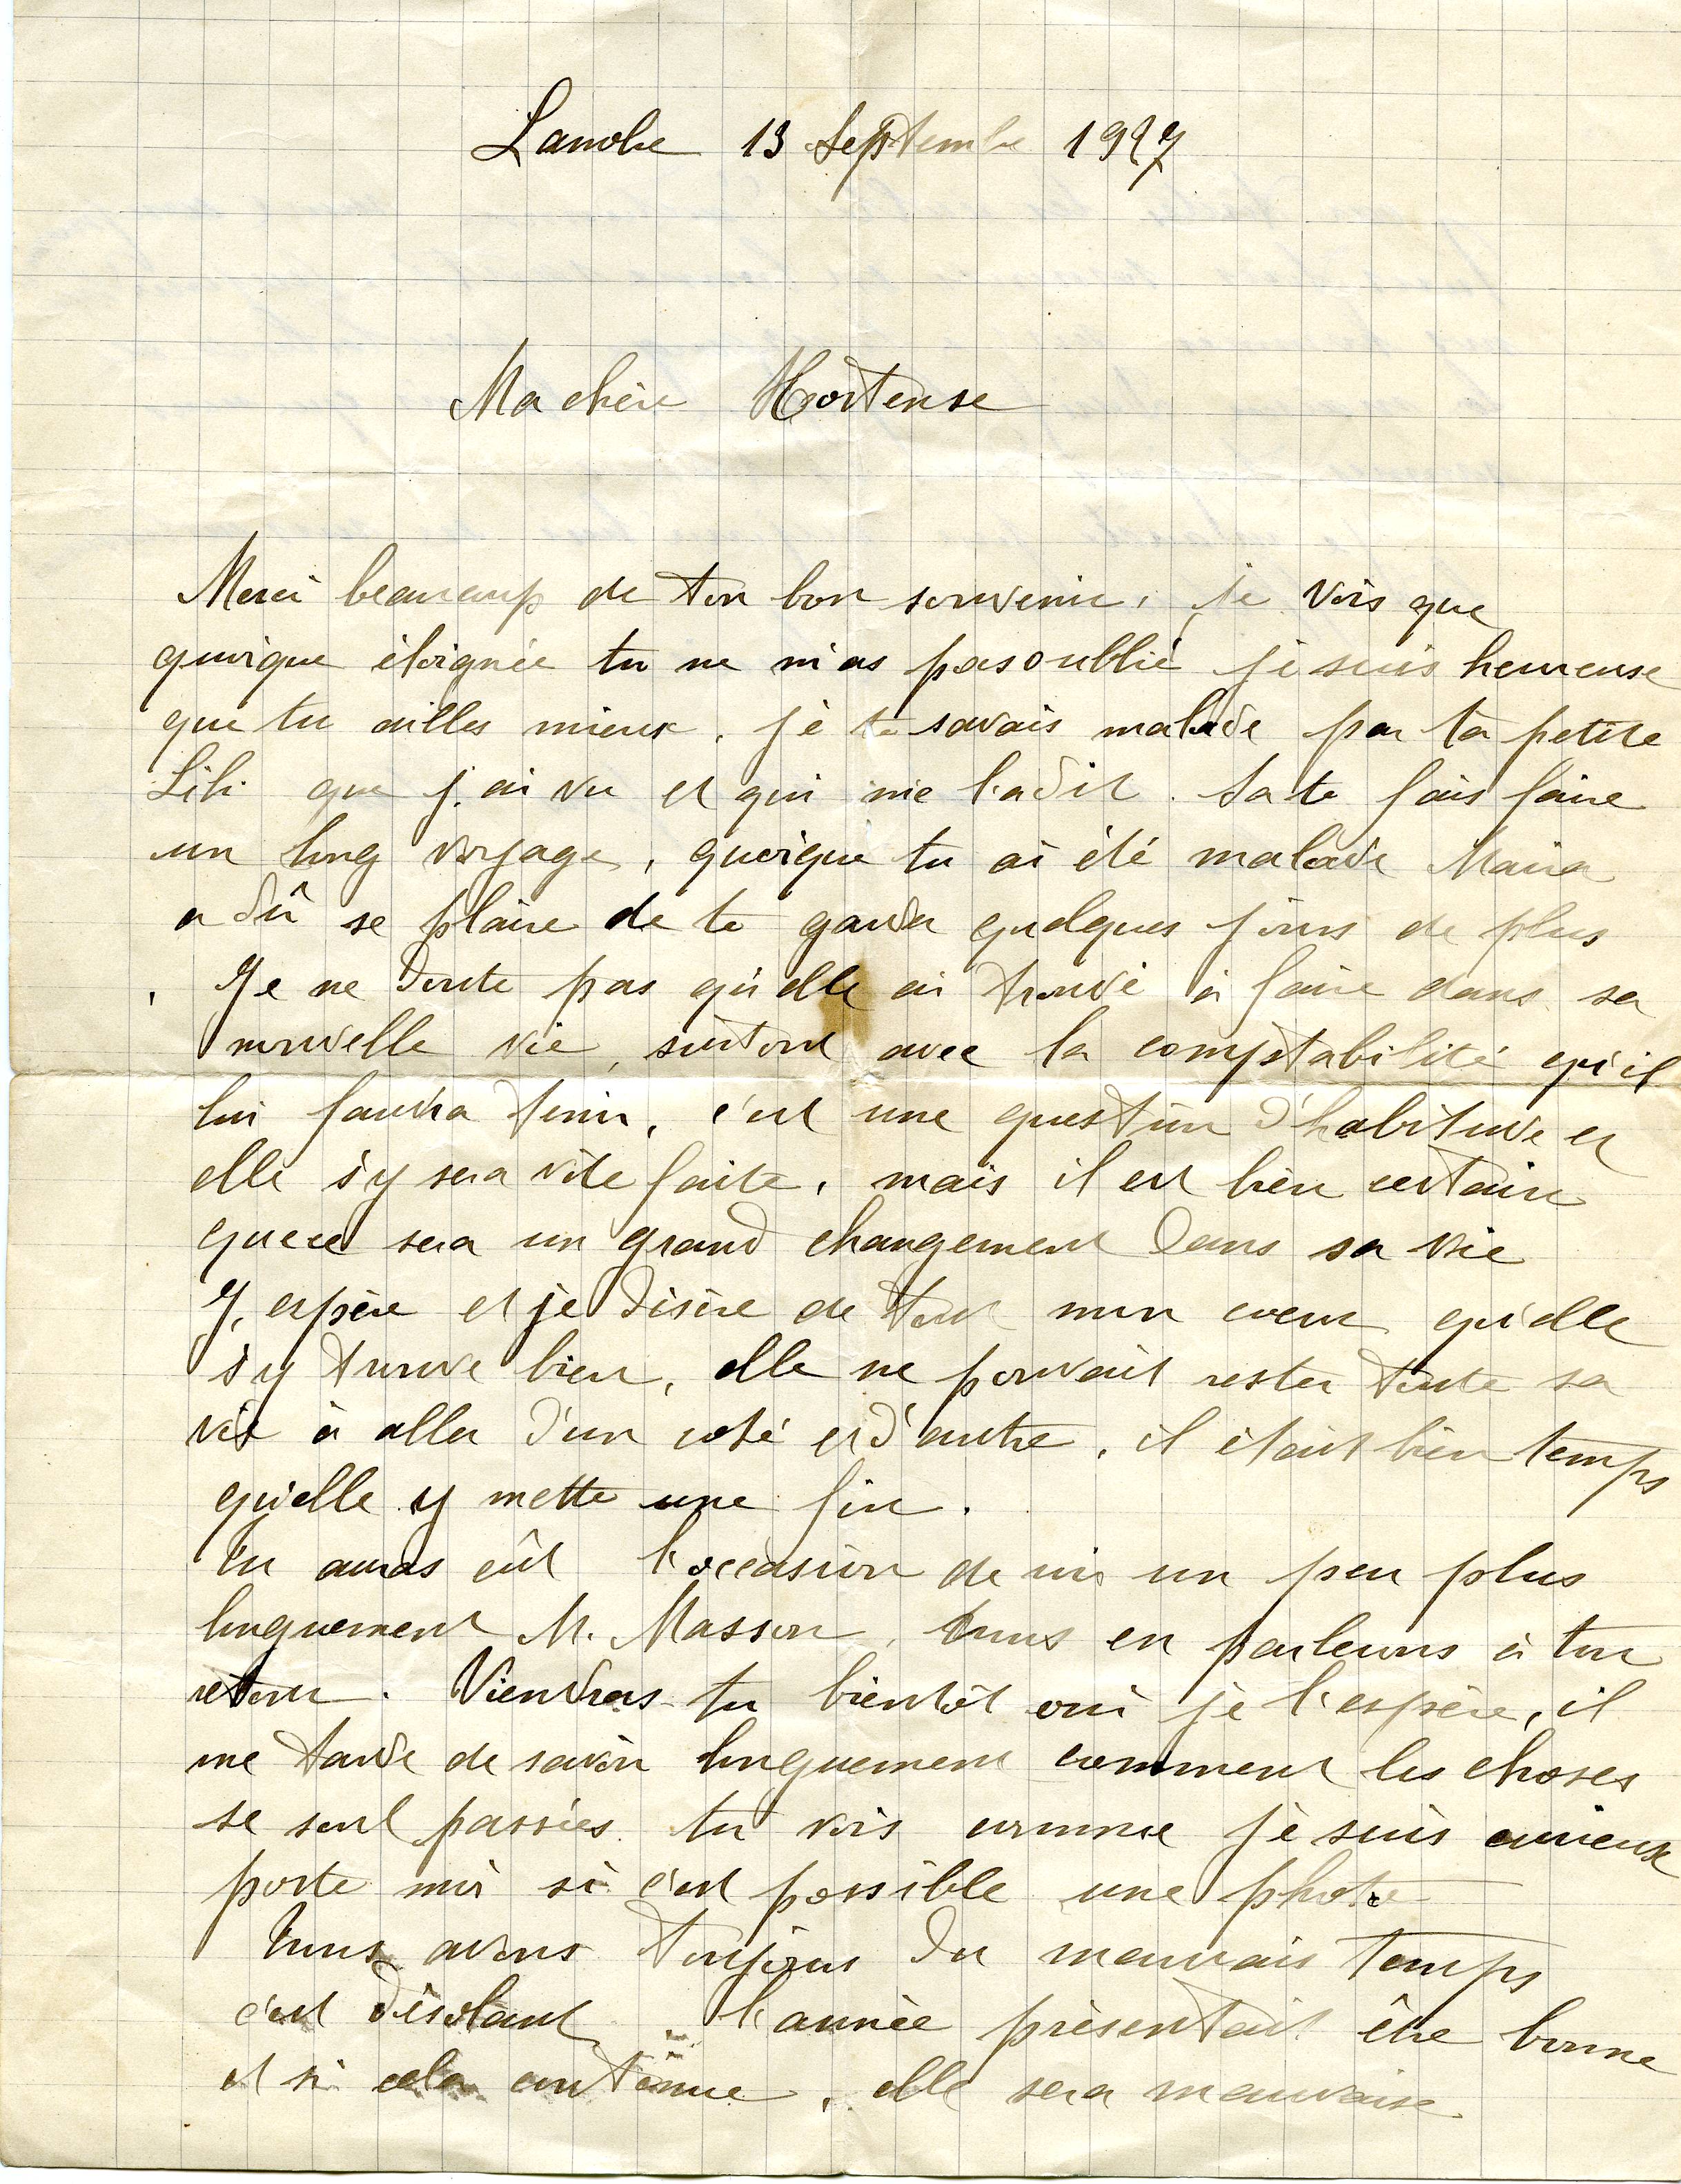 Lanobre 13 Septembre 1927
Ma chère Hortense
Merci beaucoup de ton bon souvenir, je vois que
quoique éloignée tu ne m'as pas oublié je suis heureuse
que tu ailles mieux, je te savais malade par ta petite
Lili que j'ai vu et qui me l'a dit. Sa te fais faire
un long voyage, quoique tu ai été malade Maria
a dû se plaire de te garder quelques jours de plus
Je ne doute pas qu'elle ai trouvé à faire dans sa
nouvelle vie, surtout avec la comptabilité qu'il
lui faudra tenir, c'est une question d'habitude et
elle s'y sera vite faite, mais il est bien certain
que ce sera un grand changement dans sa vie
J'espère et je désire de tout mon coeur qu'elle
s'y trouve bien, elle ne pouvait rester toute sa
vie à aller d'un coté et d'autre, il était bien temps
qu'elle y mette une fin.
Tu auras eût l'occasion de voir un peu plus
longuement M. Masson, nous en parlerons à ton
retour. Viendras-tu bientôt oui je l'espère, il
me tarde de savoir longuement comment les choses
se sont passées tu vois comme je suis curieuse
porte moi si c'est possible une photo
Nous avons toujours du mauvais temps
c'est désolant, l'année présentait être bonne
et si cela continue, elle sera mauvaise.